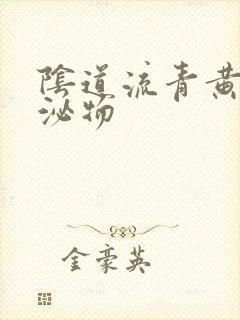 陰道流青黃
泌物
金豪英